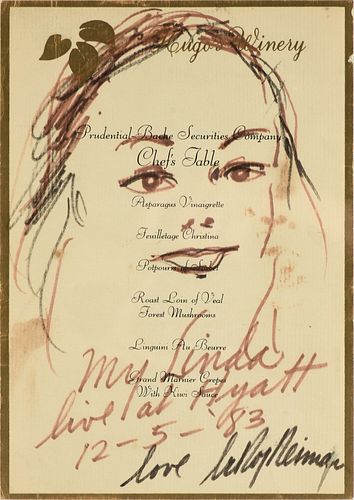 Hugo's Winery
Prudential-Bache Securities Company
Chef's Table
Asparagus Vinaigrette
Feuilletage Christina
Potpourri of Sorbet
Roast Loin of Veal
Forest Mushrooms
Linguini Au Beurre
Grand Marnier Crepes
With Kiwi Sauce
My Linda
live at Hyatt
12-5-'83
love LeRoy Neiman